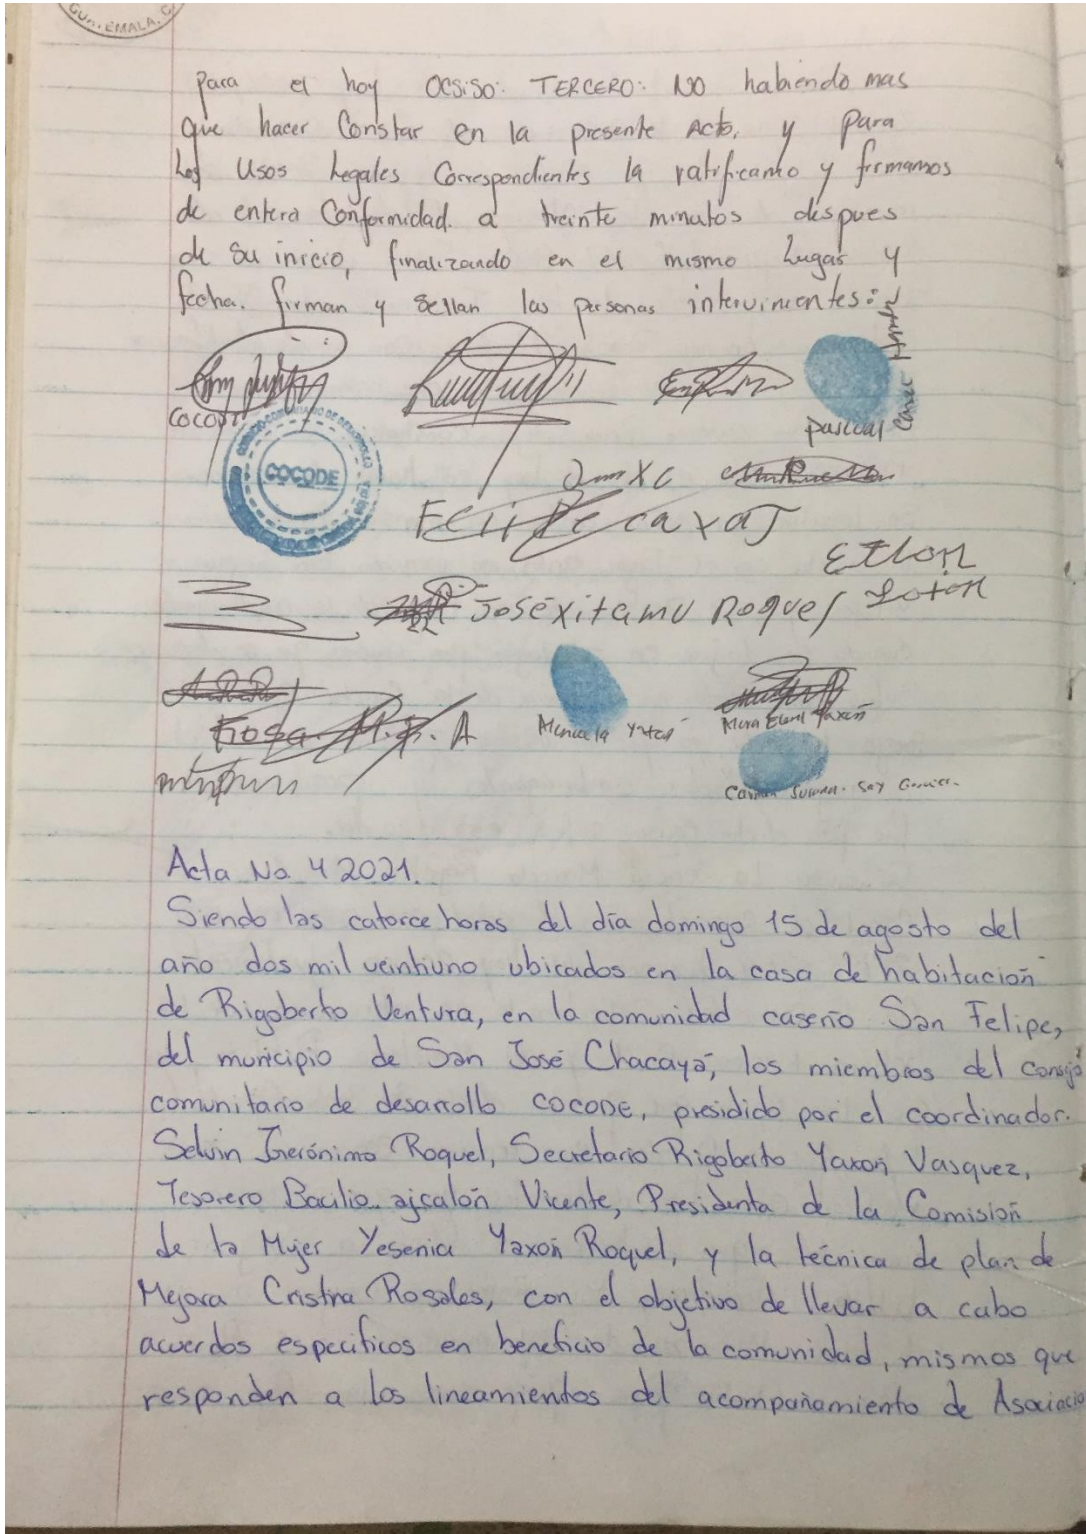 GUATEMALA, C.
para el hoy OCSISO: TERCERO: NO habiendo mas
que hacer Constar en la presente Acto, y para
Los Usos Legales Correspondientes la ratificamo y firmamos
de entera Conformidad. a treinte minutos despues
de su inicio, finalizando en el mismo Lugar y
fecha. firman y sellan las personas intervinientes:
pascual
COCODE
Felipe caxaj
José xitamu Roquel
Rosa A
Manuela
Acta No 4 2021.
Siendo las catorce horas del día domingo 15 de agosto del
año dos mil veintiuno ubicados en la casa de habitación
de Rigoberto Ventura, en la comunidad caserio San Felipe,
del municipio de San José Chacayá, los miembros del consejo
comunitario de desarrollo COCODE, presidido por el coordinador.
Selvin Jerónimo Roquel, Secretario Rigoberto Yaxón Vasquez,
Tesorero Bacilio ajcalón Vicente, Presidenta de la Comisión
de la Mujer Yesenia Yaxón Roquel, y la técnica de plan de
Mejora Cristina Rosales, con el objetivo de llevar a cabo
acuerdos específicos en beneficio de la comunidad, mismos que
responden a los lineamientos del acompañamiento de Asociacio